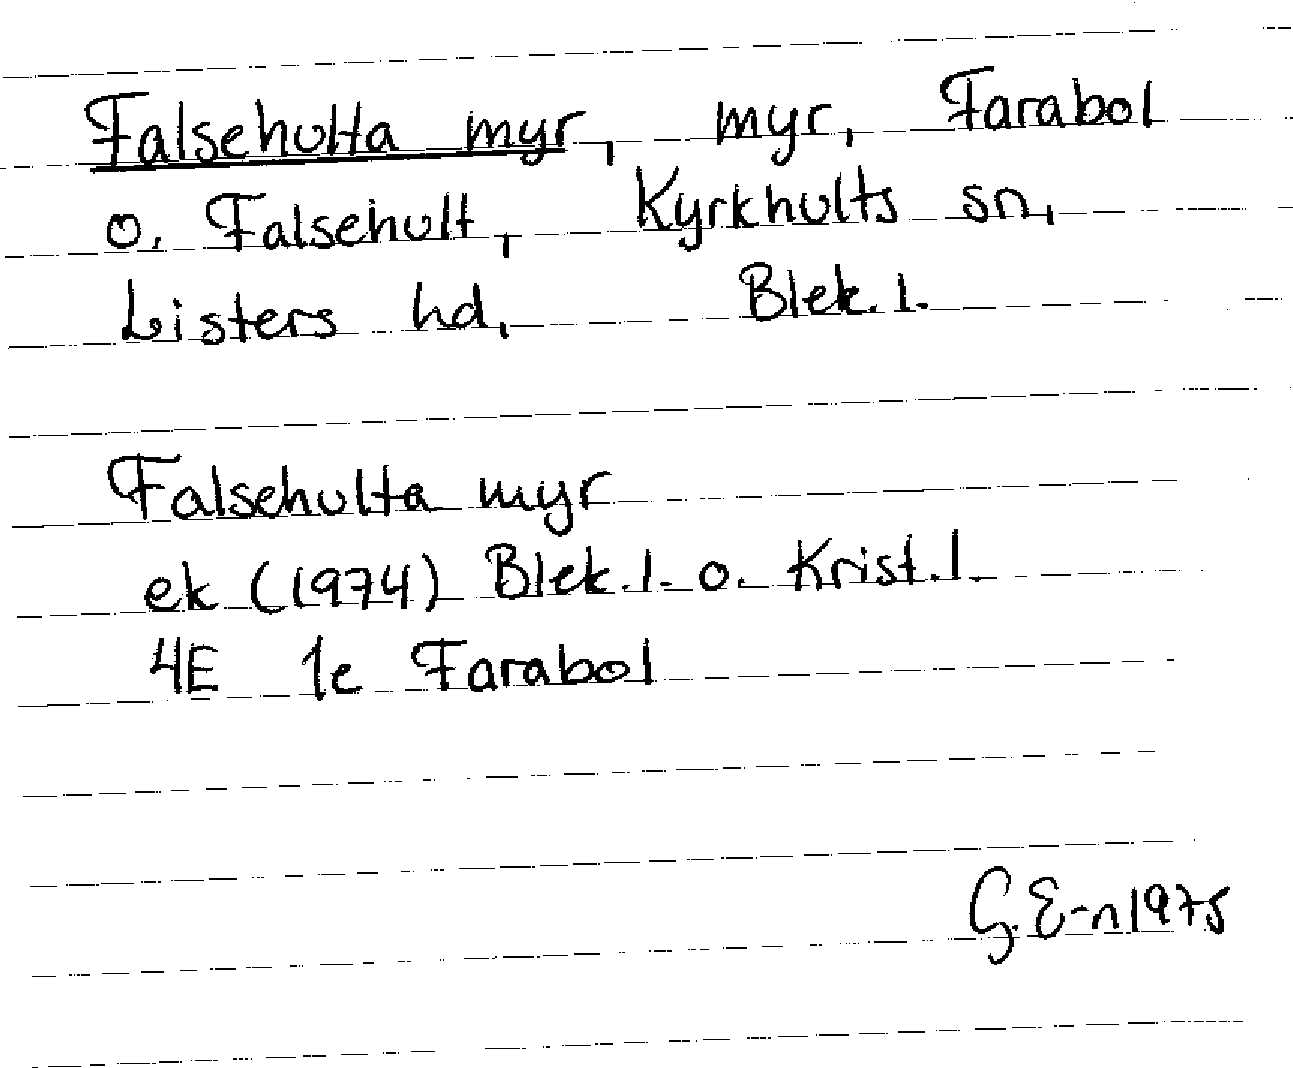 Falsehulta myr, myr, Farabol
o. Falsehult, Kyrkhults sn,
Listers hd, Blek. l.
Falsehulta myr
ek (1974) Blek. l. o. Krist. l.
4E 1e Farabol
G. E-n 1975